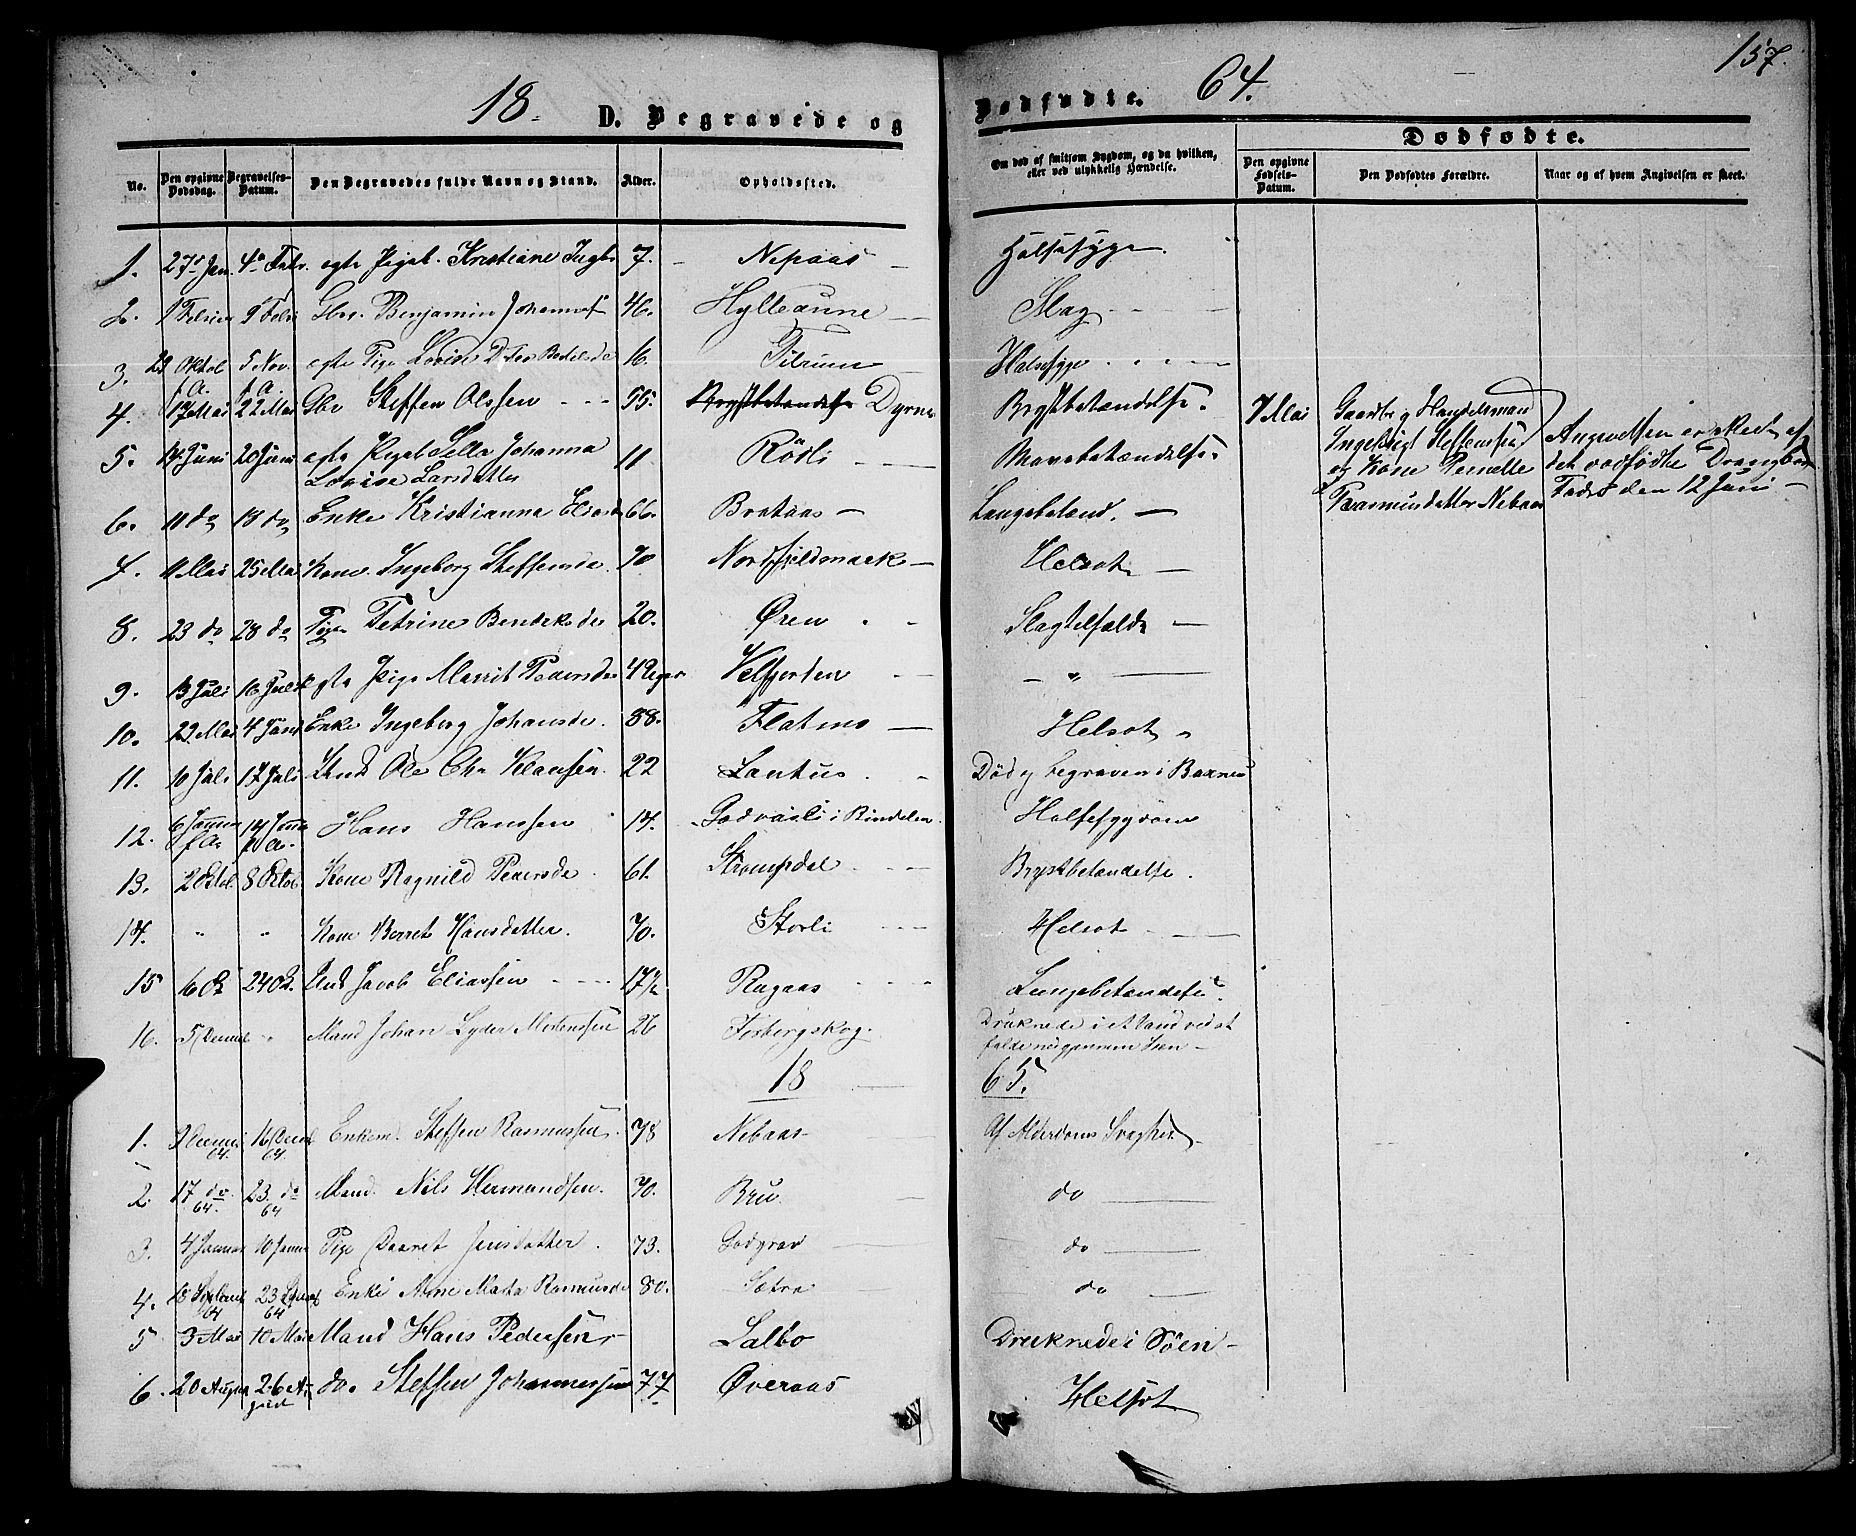 157.
18. D. Begravede og Dødfødte. 64.
Dødfødte.
No.
Den opgivne Dødsdag.
Begravelses-Datum.
Den Begravedes fulde Navn og Stand.
Alder.
Opholdssted.
Om død af smitsom Sygdom, og da hvilken, eller ved ulykkelig Hændelse.
Den opgivne Fødsels-Datum.
Den Dødfødtes Forældre.
Naar og af hvem Angivelsen er skeet.
1. 27 Jan. 4 Febr. egte Pigeb. Kristiane 7. Nepaas Halssyge.
2. 1 Febr 9 Febr Gbr. Benjamin Johannes 46. Hylleaune Slag
3. 29 Oktob f.A. 5 Nov. f.A. egte Pige Lovise 16. Tilrum Halssyge
4. 12 Mai 22 Mai Gbr Steffen Olssen 55. Brystbetændelse Dyrnes Brystbetændelse.
7 Mai
Gaardbr. og Handelsman
Ingebrigt Steffensen
og Kone Pernelle
Rasmusdatter Nebaas
Angivelsen er skedt af
det dødfødte Drengb.
Fader den 12 Juni
5. 14 Juni 20 Juni egte Pigeb Sella Johanna
Lovise Larsdatter 11 Rödli Mavebetændelse.
6. 11 do 18 do Enke Kristianna Eliasd 66. Brataas Lungebetænd.
7. 11 Mai 25 Mai Kone Ingeborg Steffensde. 70 Nordfjeldmark Helsot
8. 23 do 28 do Pige Petrine Bendeksde 20. Øren Slagtilfælde
9. 13 Juli 16 Juli egte Pige Marrit Pedersde 4 Uger Velfjorden "
10. 29 Mai 4 Juni Enke Ingeborg Johansde. 88. Flatmo Helsot "
11. 10 Juli 17 Juli Ole Chr Klausen. 22 Lantus Död og begraven i
12. 6 Januar f.A. 14 Janu f.A. Hans Hanssen 14. Godvasli i Bindalen
13. 2 Oktob 8 Oktob Kone Ragnild Pedersde 61. Strompdal Brystbetændelse.
14. " " Kone Berret Hansdatter. 70. Storli Helsot
15 16 Ok 24 Ok. Und Jacob Eliassen 17½ Ragaas Lungebetændelse.
16. 5 Decemb " Mand Johan Lyder Mortenssen 26 Forbergskog. Druknede i et Vand ved at
falde igjennem Isen
18 65.
1. 9 Decemb 64. 16 Decemb 64. Enkem. Steffen Rasmussen. 78 Nebaas Af Alderdoms Svaghed
2. 17 do 64. 23 do 64 Mand. Nils Hermandsen. 70. Bru. do
3. 4 Januar 10 Januar Pige Baaret Jensdatter. 73. Godgrav do
4. 18 64 23 64 Enke Anne Marta Rasmusde 80. Sætra do
5 3 Mai 10 Mai Mand Hans Pedersen Salbo Druknede i Söen
6. 20 August 26 August do. Steffen Johannessen 77. Øveraas Helsot